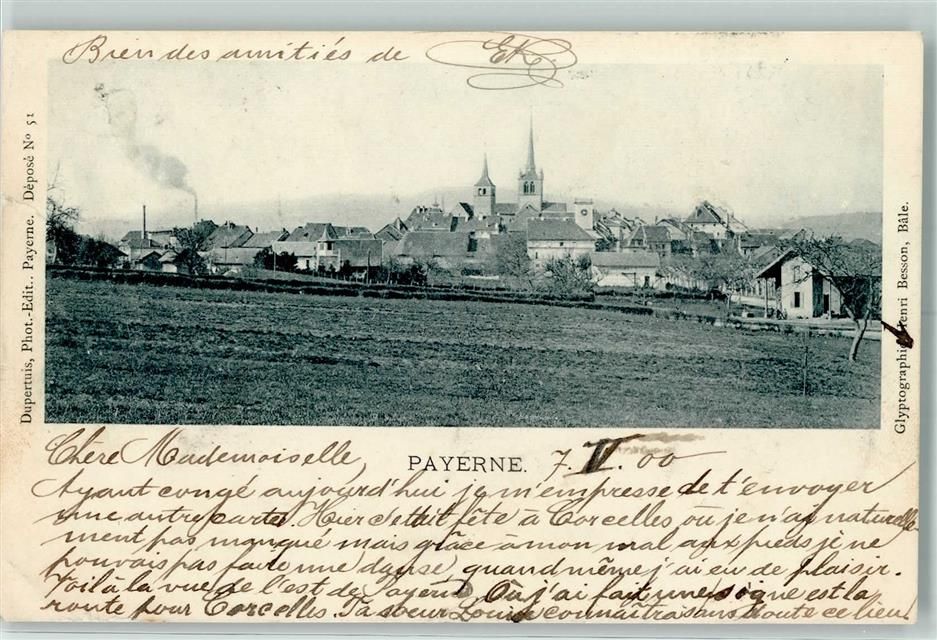 Bien des amitiés de EK
Dupertuis, Phot.-Edit., Payerne. Déposé No 51
Glyptographie Henri Besson, Bâle.
PAYERNE.
7. IV. 00
Chère Mademoiselle,
Ayant congé aujourd'hui je m'empresse de t'envoyer
une autre carte. Hier c'était fête à Corcelles où je n'ai naturelle-
ment pas manqué mais grâce à mon mal aux pieds je ne
pouvais pas faire une danse quand même j'ai eu de plaisir.
Voilà la vue de l'est de Payerne Où j'ai fait une signe est la
route pour Corcelles. Ta soeur Louise connaîtra sans doute ce lieu